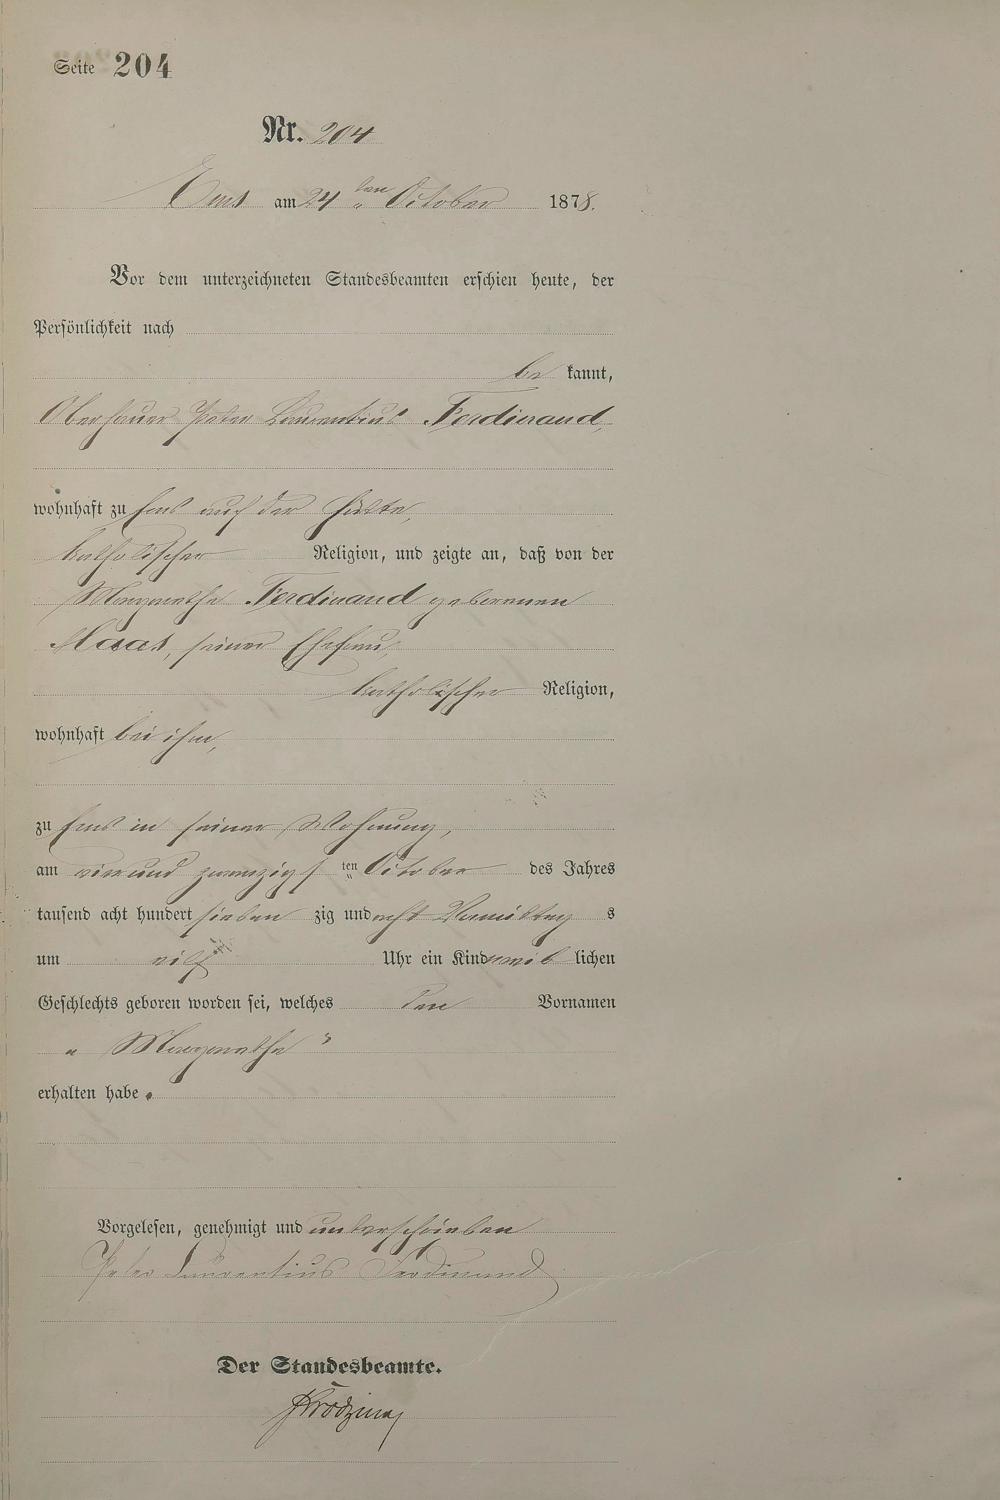 Seite 204
Nr. 204
Ems am 24ten October 1878.
Vor dem unterzeichneten Standesbeamten erschien heute, der
Persönlichkeit nach
be kannt,
Peter Laurentius Ferdinand,
wohnhaft zu Ems auf der Hütte,
katholischer Religion, und zeigte an, daß von der
Margarethe Ferdinand geborenen
Maas, seiner Ehefrau,
katholischer Religion,
wohnhaft bei ihm,
zu Ems in seiner Wohnung,
am vier und zwanzigsten October des Jahres
tausend acht hundert sieben zig und acht Vormittag s
um eilf Uhr ein Kind weib lichen
Geschlechts geboren worden sei, welches den Vornamen
„ Margarethe "
erhalten habe.
Vorgelesen, genehmigt und unterschrieben
Peter Laurentius Ferdinand
Der Standesbeamte.